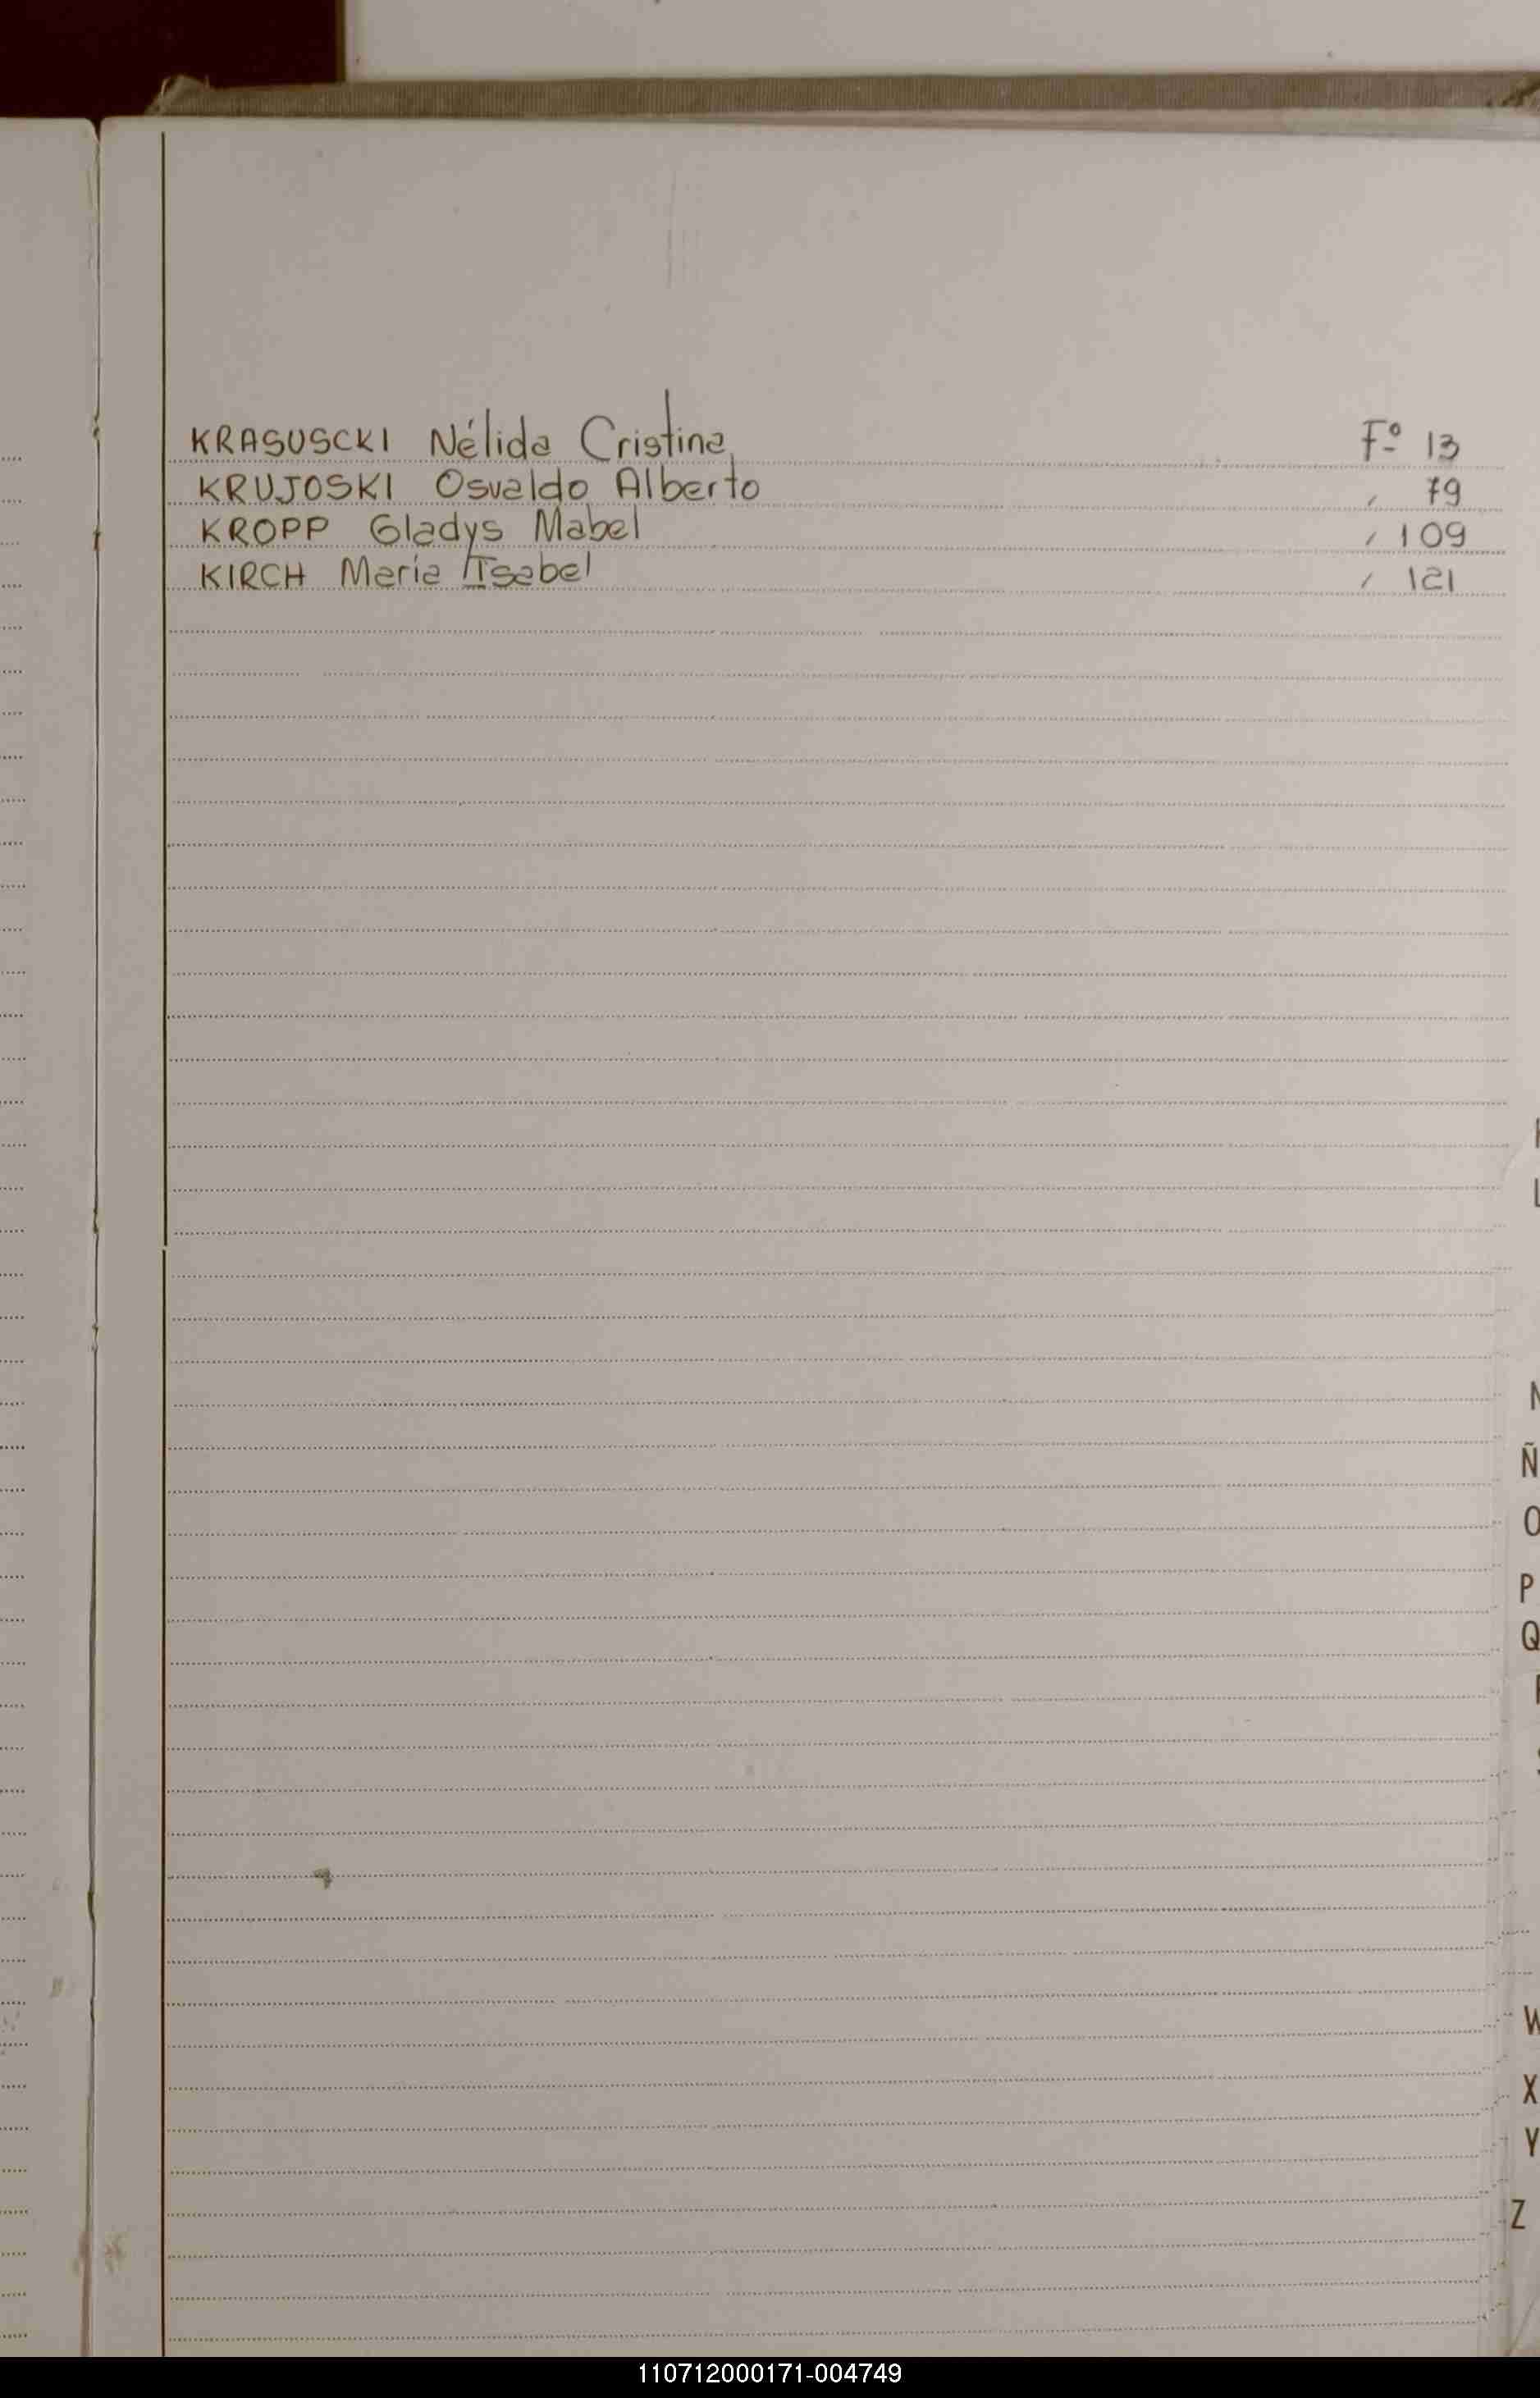 KRASUSCKI Nélida Cristina Fº 13
KRUJOSKI Osvaldo Alberto , 79
KROPP Gladys Mabel , 109
KIRCH María Isabel , 121
L
N
Ñ
O
P
Q
W
X
Y
Z
110712000171-004749